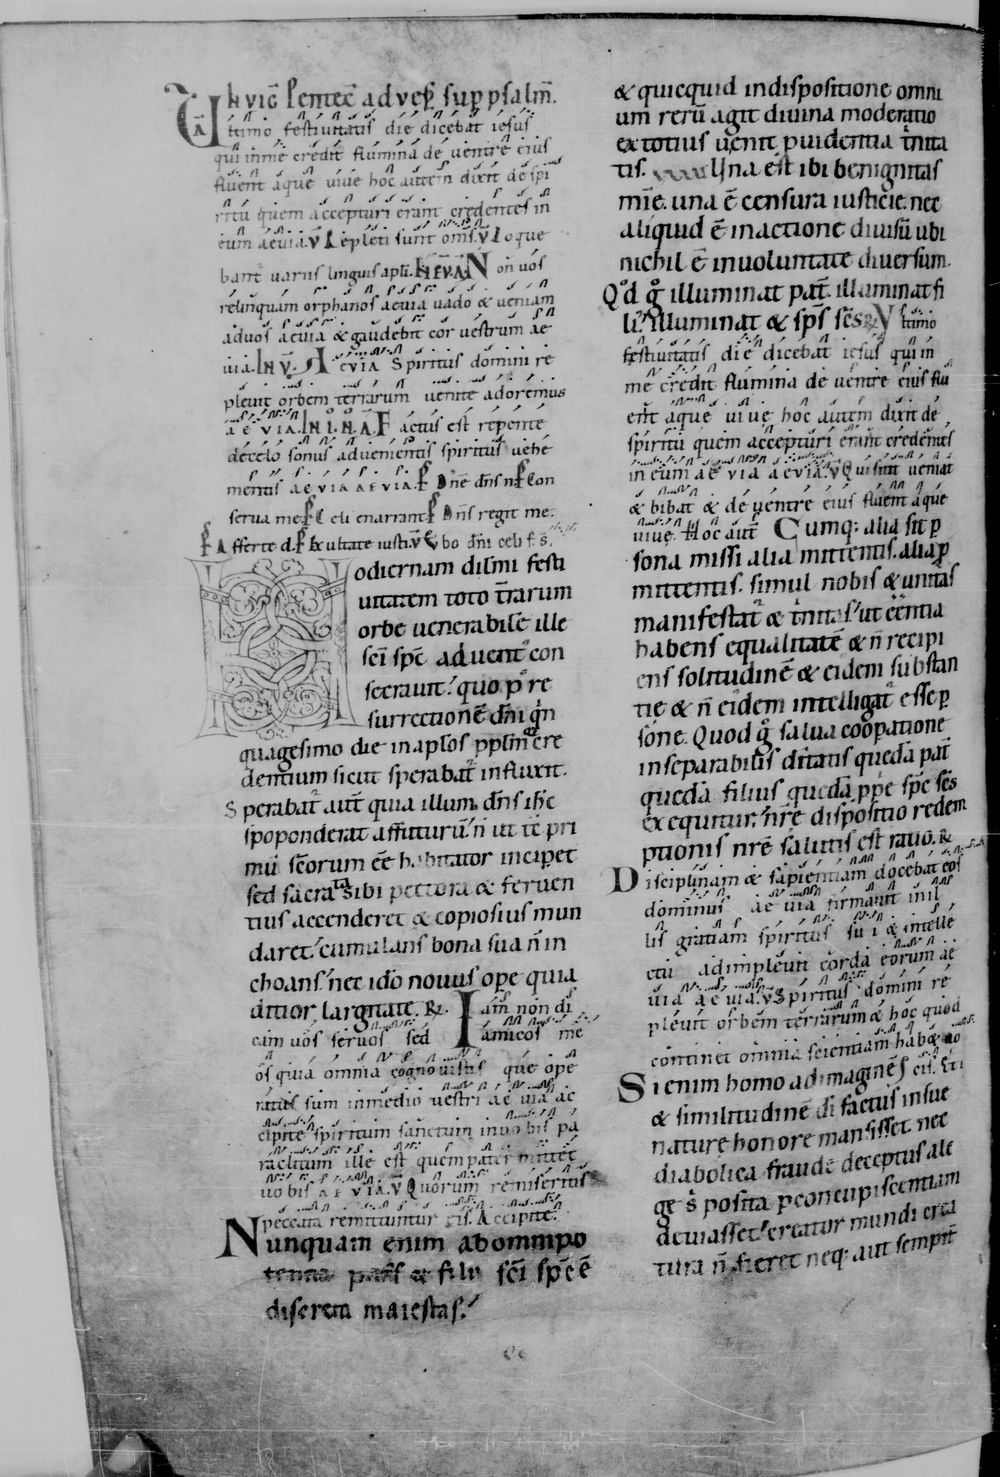 In vig̅ Pentec̅ ad vesp̅ sup̅ psalm̅.
A̅ Ultimo festiuitatis die dicebat iesus
qui in me credit flumina de uentre eius
fluent aque uiue hoc autem dixit de spi
ritu quem accepturi erant credentes in
eum aeuia. V̅ Repleti sunt om̅s. V̅ Loque
bant uariis linguis apl̅i. IN EV̅. A̅ Non uos
relinquam orphanos aeuia uado & ueniam
ad uos aeuia & gaudebit cor uestrum ae
uia. INV̅. Aeuia Spiritus domini re
pleuit orbem terrarum uenite adoremus
aeuia. IN I. N. A̅ Factus est repente
de celo sonus aduenientis spiritus uehe
mentis aeuia aeuia. P̅ Dn̅e dn̅s n̅r P̅ Con
serua me. P̅ Celi enarrant P̅ Dn̅s regit me.
P̅ Afferte d. P̅ Exultate iusti. V̅ Verbo dn̅i celi f. s.
Hodiernam dil̅mi festi
uitatem toto t̅rarum
orbe uenerabile ille
sc̅i sp̅c aduentꝰ con
secrauit. quo pꝰ re
surrectione̅ dn̅i q̅n
quagesimo die in aplos pplm̅ cre
dentium sicut sperabat̅ influxit.
Sperabat̅ aut̅ quia illum dn̅s ih̅c
spoponderat affuturu̅. n̅ ut te̅ pri
mu̅ sc̅orum ee̅ habitator inciperet
sed sacrata sibi pectora & feruen
tius accenderet & copiosius mun
daret. cumulans bona sua n̅ in
choans. nec ido̅ nouus ope quia
ditior largitate. R̅. Iam non di
cam uos seruos sed amicos me
os quia omnia cognouistis que ope
ratus sum in medio uestri aeuia ac
cipite spiritum sanctum in uobis pa
raclitum ille est quem pater mittet
uobis aeuia. V̅ Quorum remiseritis
peccata remittuntur eis. Accipite.
Nunquam enim ab omnipo
tentia patris & filii sc̅i sp̅c e̅
discreta maiestas.
& quicquid in dispositione omni
um reru̅ agit diuina moderatio
ex totius uenit p̅uidentia t̅nita
tis. Una est ibi benignitas
mi̅e. una e̅ censura iusticie. nec
aliquid e̅ in actione diuisu̅ ubi
nichil e̅ in uoluntate diuersum.
Qd̅ g̅ illuminat pat̅. illuminat fi
liꝰ. illuminat & sp̅s sc̅s. R̅ Vltimo
festiuitatis die dicebat iesus qui in
me credit flumina de uentre eius flu
ent aque uiue hoc autem dixit de
spiritu quem accepturi erant credentes
in eum aeuia aeuia. V̅ Qui sitit ueniat
& bibat & de uentre eius fluent aque
uiue. Hoc aut̅ Cumq; alia sit p̅
sona missi alia mittentis. alia p̅
mittentis. simul nobis & unitas
manifestat̅ & t̅nitas. ut ee̅ntia
habens equalitate̅ & n̅ recipi
ens solitudine̅ & eidem substan
tie & n̅ eidem intelligat̅ esse p̅
sone. Quod g̅ salua cooperatione
inseparabilis ditatis queda̅ pat̅
queda̅ filius queda̅ p̅p̅e sp̅c sc̅s
exequitur. n̅re̅ dispositio redem
ptionis nre̅ salutis est ratio. R̅
Disciplinam & sapientiam docebat eos
dominus aeuia firmauit in il
lis gratiam spiritus sui & intelle
ctu adimpleuit corda eorum ae
uia aeuia. V̅ Spiritus domini re
pleuit orbem terrarum & hoc quod
continet omnia scientiam habet uo
Si enim homo ad imagine̅ cis. Et i
& similitudine̅ di̅ factus in sue
nature honore mansisset. nec
diabolica fraude deceptus a le
ge s̅ posita p̅ concupiscentiam
deuiasset. creator mundi crea
tura n̅ fieret neq; aut sempit̅